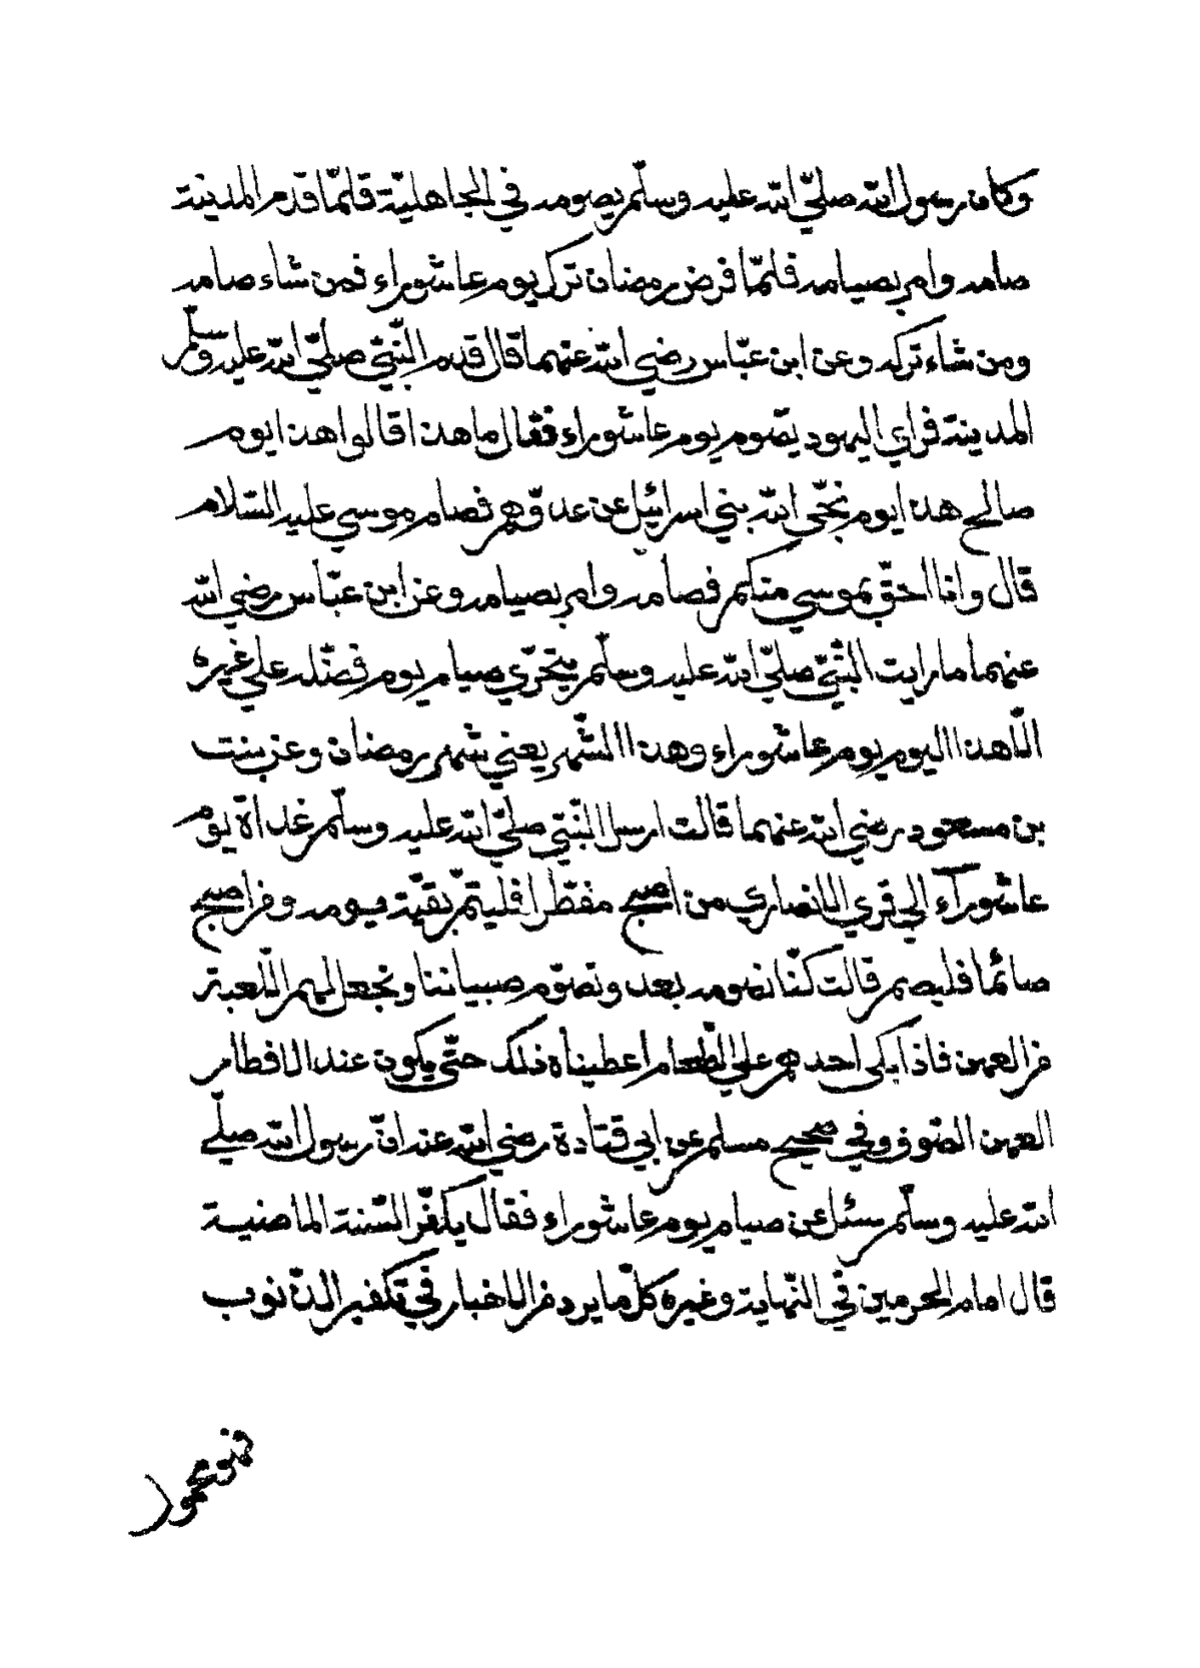 وكان رسول الله صلّي الله عليه وسلّم يصومه في الجاهليّة فلمّا قدم المدينة
صامه وامر بصيامه فلمّا فرض رمضان ترك يوم عاشوراء فمن شاء صامه
ومن شاء تركه وعن ابن عبّاس رضي الله عنهما قال قدم النّبيّ صلّي الله عليه وسلّم
المدينة فراي اليهود يصوم يوم عاشوراء فقال ما هذا قالوا هذا يوم
صالح هذا يوم نجّى الله بني اسرائيل عن عدوّهم فصام موسي عليه السّلام
قال وانا احقّ بموسي منكم فصامه وامر بصيامه وعن ابن عبّاس رضي الله
عنهما ما رايت النّبيّ صلّي الله عليه وسلّم يتحرّي صيام يوم فضّله علي غيره
الّا هذا اليوم يوم عاشوراء وهذا الشّهر يعني شهر رمضان وعن بنت
بن مسعود رضي الله عنهما قالت ارسل النّبيّ صلّي الله عليه وسلّم غداة يوم
عاشورآء الي قري الانصاري من اصبح مفطّرا فليتمّ بقيّة يومه ومن اصبح
صائما فليصم قالت كنّا نصومه بعد ونصوّم صبياننا ونجعل لهم اللّعبة
من العهن فاذا بكى احدهم علي الطّعام اعطيناه ذلك حتّي يكون عند الافطار
العهن الصّوف وفي صحيح مسلم عن ابي قتادة رضي الله عنه انّ رسول الله صلّي
الله عليه وسلّم سئل عن صيام يوم عاشوراء فقال يكفّر السّنة الماضية
قال امام الحرمين في النّهاية وغيره كلّ ما يرد من الاخبار في تكفير الذّنوب